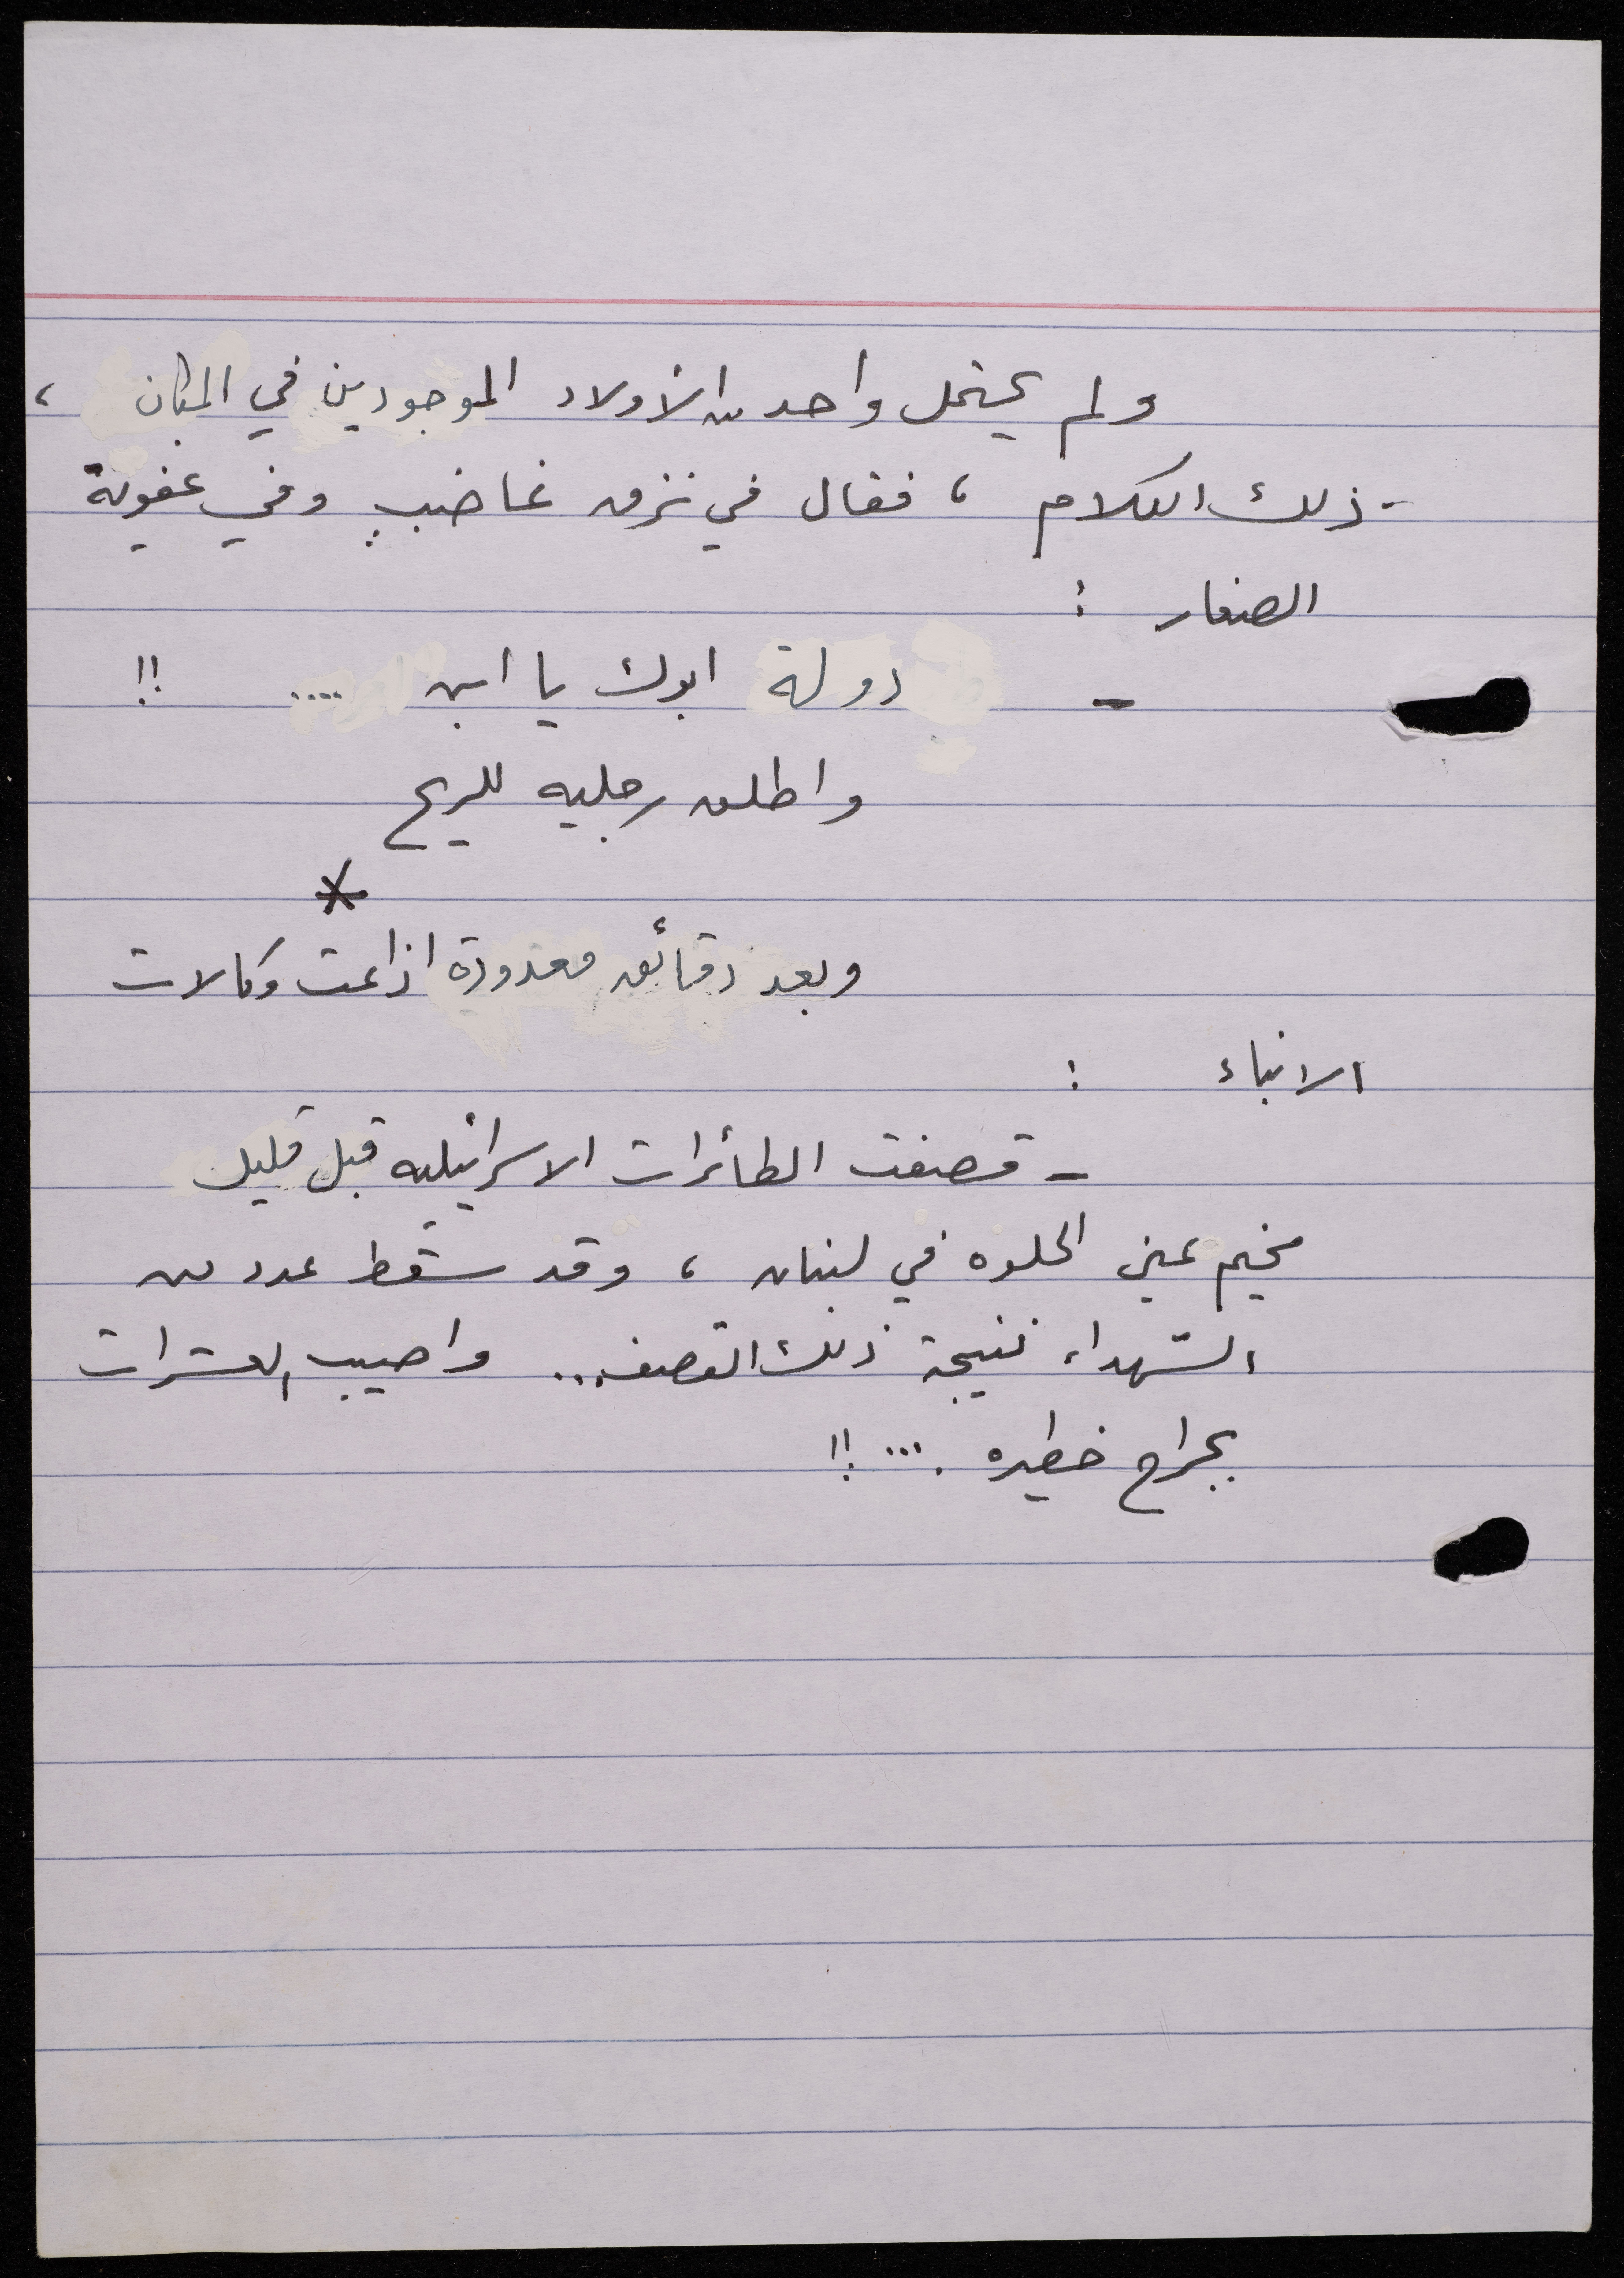 ولم يحتمل واحد من الأولاد الموجودين في المكان ،
ذلك الكلام ، فقال في نزق غاضبٍ وفي عفوية
الصغار :
- دولة ابوك يا ابن .... !!
واطلق رجليه للريح
*
وبعد دقائق معدودة اذاعت وكالات
الانباء :
- قصفت الطائرات الاسرائيليه قبل قليل
مخيم عين الحلوه في لبنان ، وقد سقط عدد من
الشهداء نتيجة ذلك القصف ... واصيب العشرات
بجراح خطيره .... !!